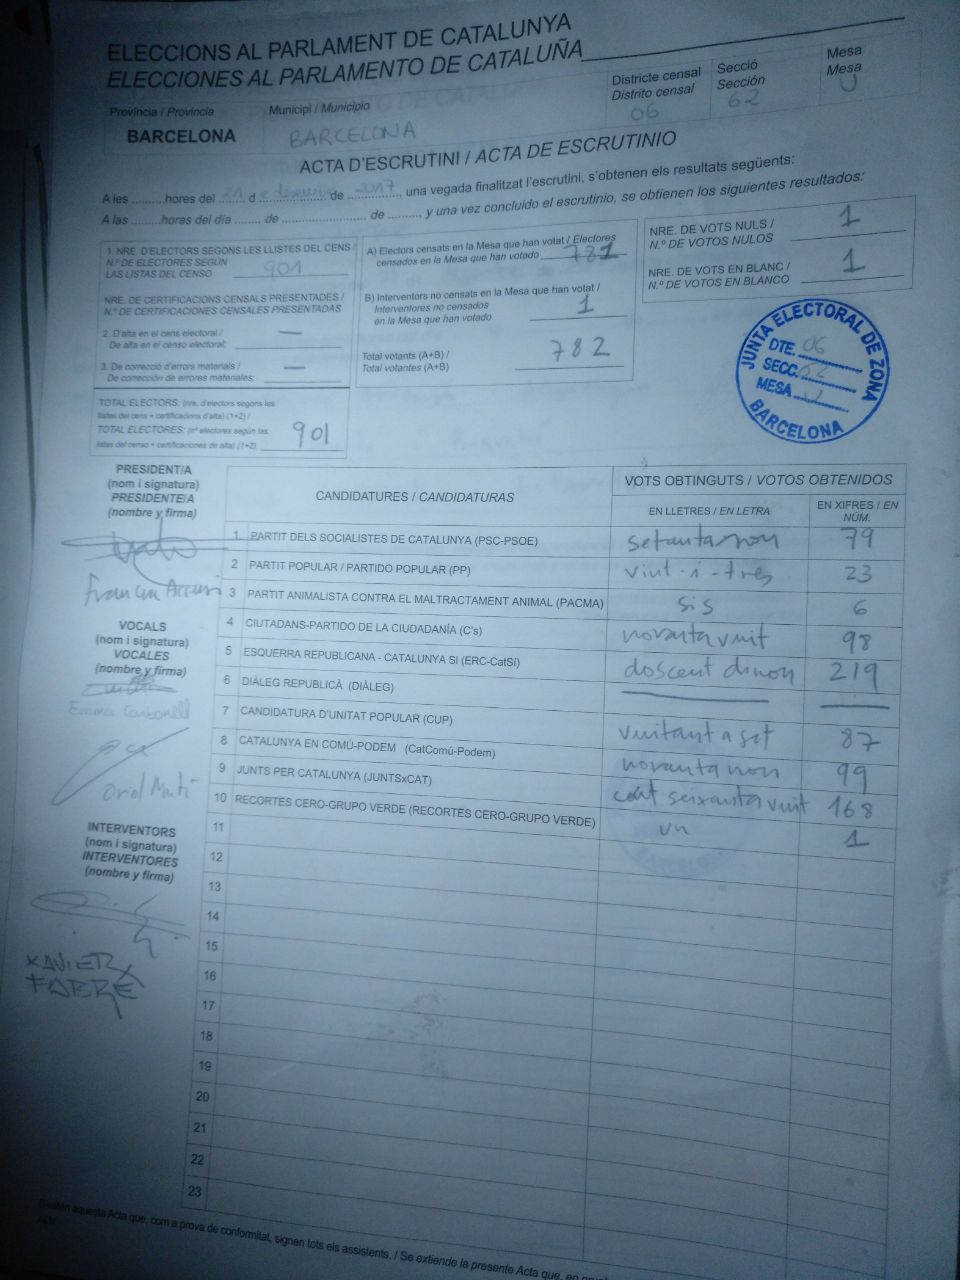 ELECCIONS AL PARLAMENT DE CATALUNYA
ELECCIONES AL PARLAMENTO DE CATALUÑA
Província / Provincia
BARCELONA
Municipi / Municipio
BARCELONA
Districte censal
Distrito censal
06
Secció
Sección
62
Mesa
Mesa
U
ACTA D'ESCRUTINI / ACTA DE ESCRUTINIO
A les ..........hores del 21 d ............... de 2017, una vegada finalitzat l'escrutini, s'obtenen els resultats següents:
A las .........horas del día ....... de ........................ de ........., y una vez concluido el escrutinio, se obtienen los siguientes resultados:
1. NRE. D'ELECTORS SEGONS LES LLISTES DEL CENS /
N.º DE ELECTORES SEGÚN
LAS LISTAS DEL CENSO
901
NRE. DE CERTIFICACIONS CENSALS PRESENTADES /
N.º DE CERTIFICACIONES CENSALES PRESENTADAS
2. D'alta en el cens electoral /
De alta en el censo electoral: —
3. De correcció d'errors materials /
De corrección de errores materiales: —
TOTAL ELECTORS: (nre. d'electors segons les
llistes del cens + certificacions d'alta) (1+2) /
TOTAL ELECTORES: (nº electores según las
listas del censo + certificaciones de alta) (1+2)
901
A) Electors censats en la Mesa que han votat / Electores
censados en la Mesa que han votado 781
B) Interventors no censats en la Mesa que han votat /
Interventores no censados
en la Mesa que han votado 1
Total votants (A+B) /
Total votantes (A+B)
782
NRE. DE VOTS NULS /
N.º DE VOTOS NULOS
1
NRE. DE VOTS EN BLANC /
N.º DE VOTOS EN BLANCO
1
JUNTA ELECTORAL DE ZONA
DTE. 06
SECC. 62
MESA U
BARCELONA
PRESIDENT/A
(nom i signatura)
PRESIDENTE/A
(nombre y firma)
VOCALS
(nom i signatura)
VOCALES
(nombre y firma)
Emma Carbonell
Oriol Martí
INTERVENTORS
(nom i signatura)
INTERVENTORES
(nombre y firma)
XAVIER
FABRE
CANDIDATURES / CANDIDATURAS
VOTS OBTINGUTS / VOTOS OBTENIDOS
EN LLETRES / EN LETRA
EN XIFRES / EN
NÚM.
1 PARTIT DELS SOCIALISTES DE CATALUNYA (PSC-PSOE) setanta-nou 79
2 PARTIT POPULAR / PARTIDO POPULAR (PP) vint-i-tres 23
3 PARTIT ANIMALISTA CONTRA EL MALTRACTAMENT ANIMAL (PACMA) sis 6
4 CIUTADANS-PARTIDO DE LA CIUDADANÍA (C's) noranta vuit 98
5 ESQUERRA REPUBLICANA - CATALUNYA SI (ERC-CatSí) doscent dinou 219
6 DIÀLEG REPUBLICÀ (DIÀLEG) — —
7 CANDIDATURA D'UNITAT POPULAR (CUP) vuitanta set 87
8 CATALUNYA EN COMÚ-PODEM (CatComú-Podem) noranta nou 99
9 JUNTS PER CATALUNYA (JUNTSxCAT) cent seixanta vuit 168
10 RECORTES CERO-GRUPO VERDE (RECORTES CERO-GRUPO VERDE) un 1
11
12
13
14
15
16
17
18
19
20
21
22
23
aquesta Acta que, com a prova de conformitat, signen tots els assistents. / Se extiende la presente Acta que, en